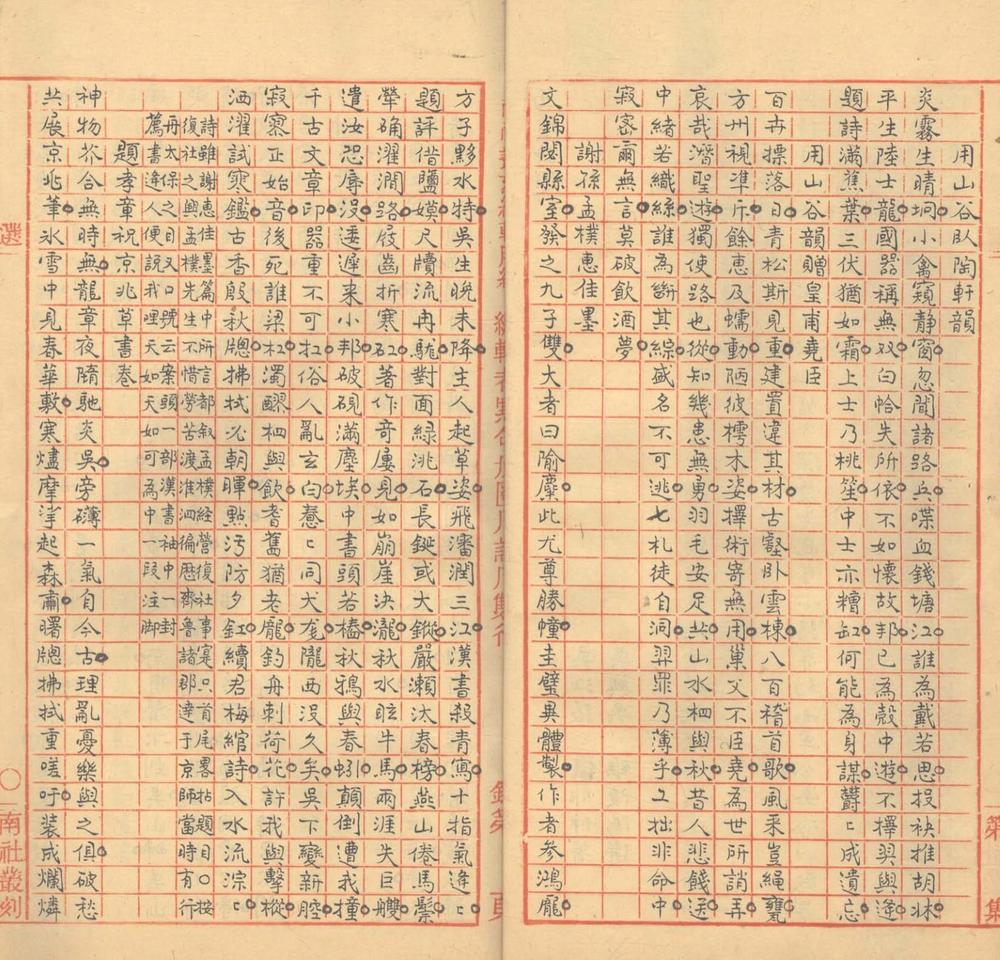 用山谷臥陶軒韻
炎霧生晴坰小禽窺静窗忽聞諸路兵喋血錢塘江誰為戴若思投袂推胡牀
平生陸士龍國器稱無双白帢失所依不如懷故邦已為彀中遊不擇羿與逄
題詩滿蕉葉三伏猶如霜上士乃桃笙中士亦糟缸何能為身謀欝〻成遺忘
用山谷韻贈皇甫堯臣
百卉摽落日青松斯見重建置違其材古壑卧雲棟八百稽首歌風采豈繩甕
方州視準斤餘惠及蠕動陋彼樗木姿擇術寄無用巢父不臣堯為世所誚弄
哀哉潛聖遊獨使路也從知幾患無勇羽毛安足共山水柶與秋昔人悲餞送
中緒若織絲誰為斷其綜盛名不可逃七札徒自洞羿罪乃薄乎工拙非命中
寂寥爾無言莫破飲酒夢
謝孫孟樸惠佳墨
文錦閟縣室發之九子雙大者曰隃麋此尤尊勝幢圭璧異體製作者參鴻龐
方子黟水特吳生晚未降主人起草姿飛瀋潤三江漢書殺青寫十指氣逄〻
題評借鹽嫫尺牘流冉駹對面綠洮石長鋋或大鏦嚴瀨汰春榜燕山倦馬鬃
犖确濯澗路屐齒折寒矼著作奇屢見如崩崖決瀧秋水眩牛馬兩涯失巨艭
遺汝恐辱沒逶遲来小邦破硯滿塵埃中書頭若樁秋鴉與春蚓顛倒遭我撞
千古文章印器重不可扛俗人亂玄白惷〻同犬奎隴西沒久矣吳下變新腔
寂寥正始音後死誰梁杠濁醪柶與飲耆舊猶老龐釣舟刺荷花許我與擊樅
洒濯試寒鑑古香殷秋牕拂拭必朝暉點污防夕釭續君梅綰詩入水流淙〻
詩雖謝惠佳墨篇中所言都叙孟樸経營復社事寔只首尾畧拈題目○按
復社之興孟樸先生不惜勞苦渡淮泗徧歴齊魯諸郡達于京師當時有行
再太保之目又口號云案頭一部漢書袖中一封
薦書逢人便說我哩天如天如可為中一叚注脚
題孝章祝京兆草書卷
神物芥合無時無龍章夜隋馳炎吳旁礴一氣自今古理亂憂樂與之俱破愁
共展京兆筆氷雪中見春華敷寒燼摩挲起森肅曙牕拂拭重嗟吁装成爛燐
選
南社叢刻
第
集